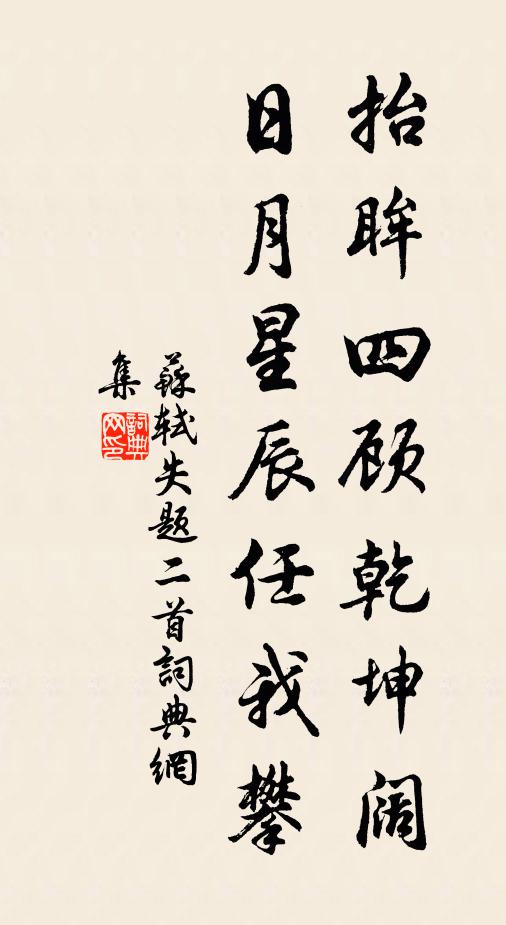 抬眸四顾乾坤阔
日月星辰任我攀
蘇軾失题二首詞典網
集
詞典
网印